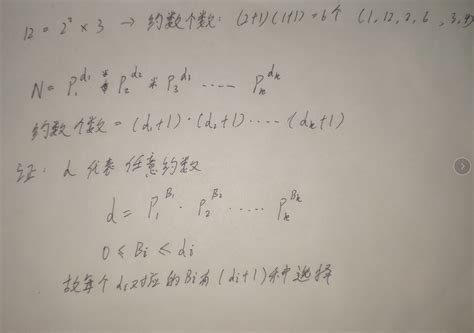 12 = 2² × 3 → 约数个数: (2+1)(1+1) = 6个 (1,12,2,6,3,4)
N = P₁^d₁ * P₂^d₂ * P₃^d₃ ..... Pₖ^dₖ
约数个数 = (d₁+1)·(d₂+1)·....·(dₖ+1)
证: d 代表 任意约数
d = P₁^B₁ · P₂^B₂ ..... Pₖ^Bₖ
0 ≤ Bi ≤ di
故每个 di对应的Bi有 (di+1) 种选择